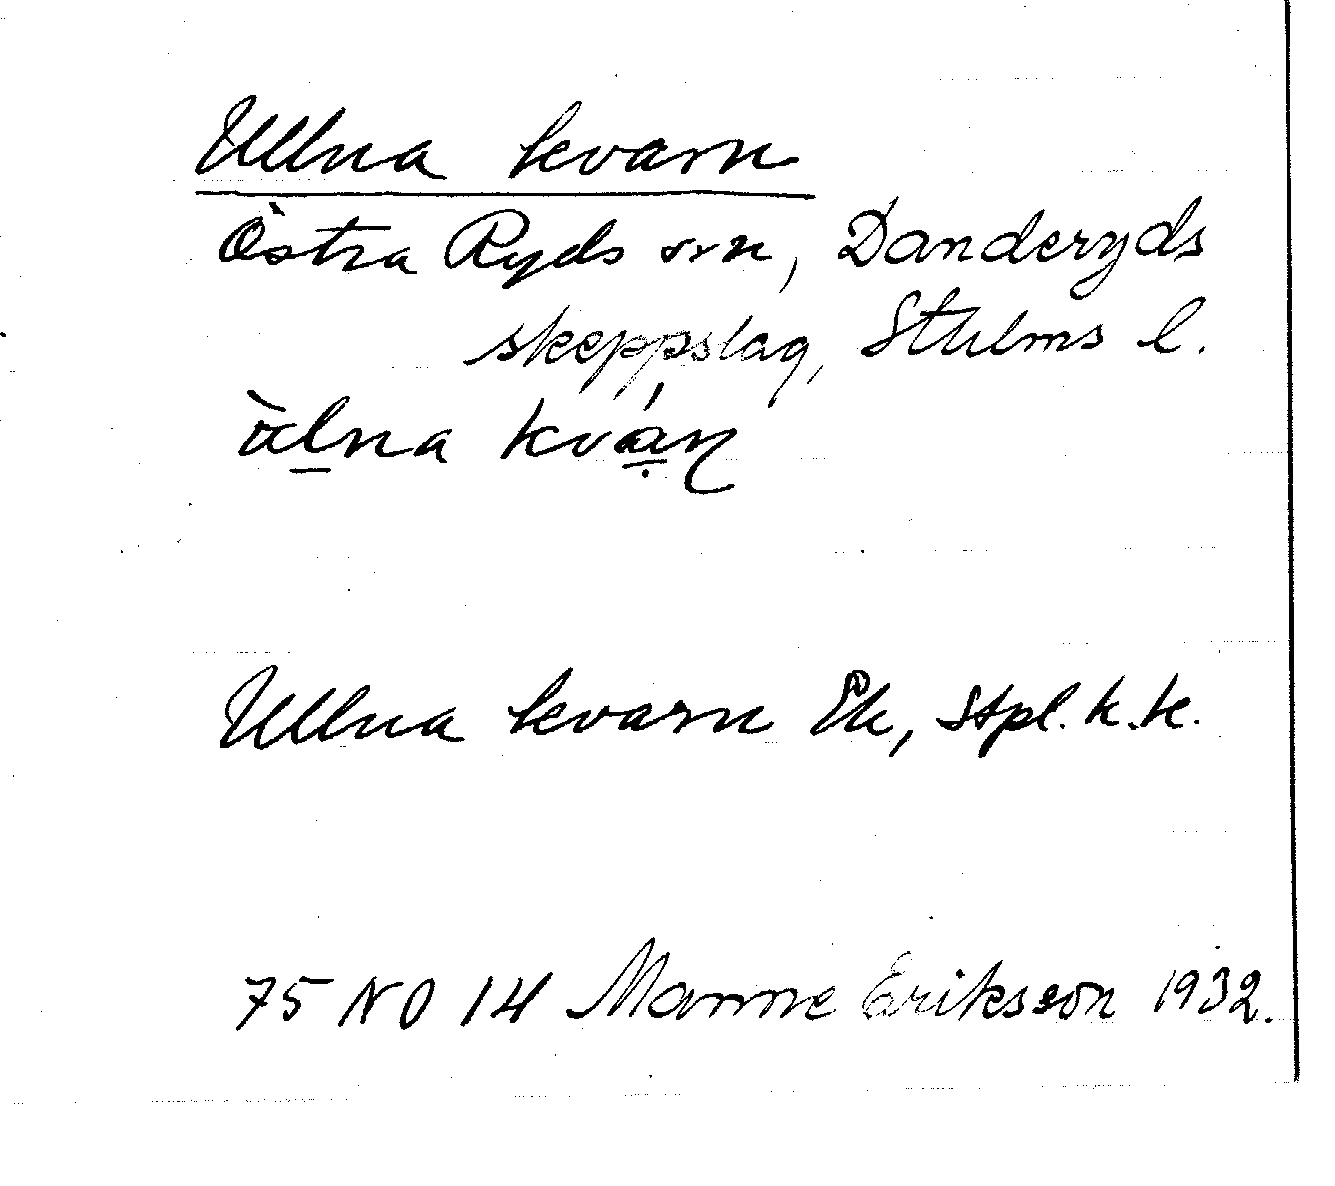 Ullna kvarn
Östra Ryds srn, Danderyds
skeppslag, Sthlms l.
ùl̲na kvá̲ṇ
Ullna kvarn Ek, Stpl. k.k.
75 NO 14 Manne Eriksson 1932.